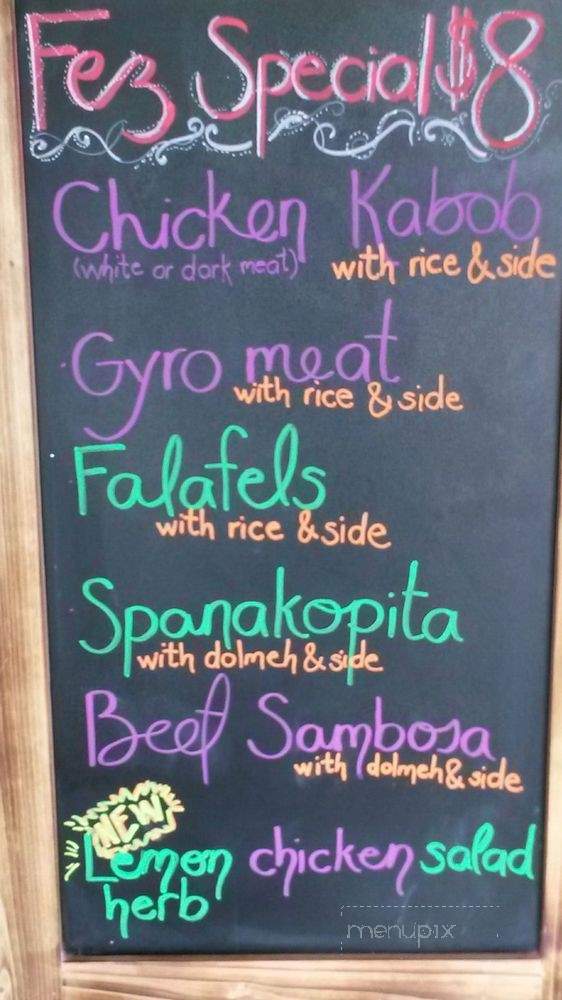 Fez Special $8
Chicken Kabob
(white or dark meat) with rice & side
Gyro meat
with rice & side
Falafels
with rice & side
Spanakopita
with dolmeh & side
Beef Sambosa
with dolmeh & side
NEW
Lemon chicken salad
herb
menupix